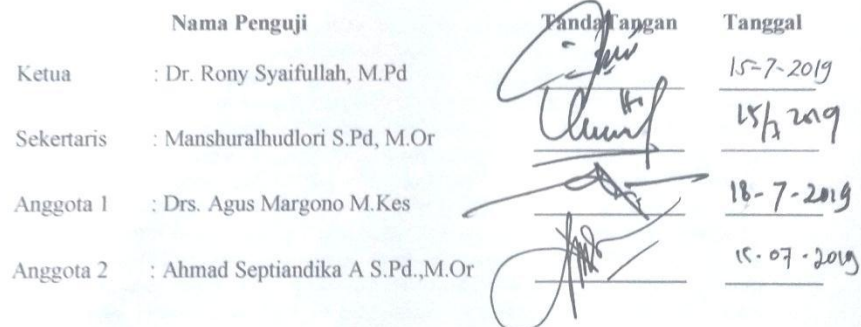 Nama Penguji Tanda Tangan Tanggal
Ketua : Dr. Rony Syaifullah, M.Pd 15-7-2019
Sekertaris : Manshuralhudlori S.Pd, M.Or 15/7 2019
Anggota 1 : Drs. Agus Margono M.Kes 18-7-2019
Anggota 2 : Ahmad Septiandika A S.Pd.,M.Or 15-07-2019